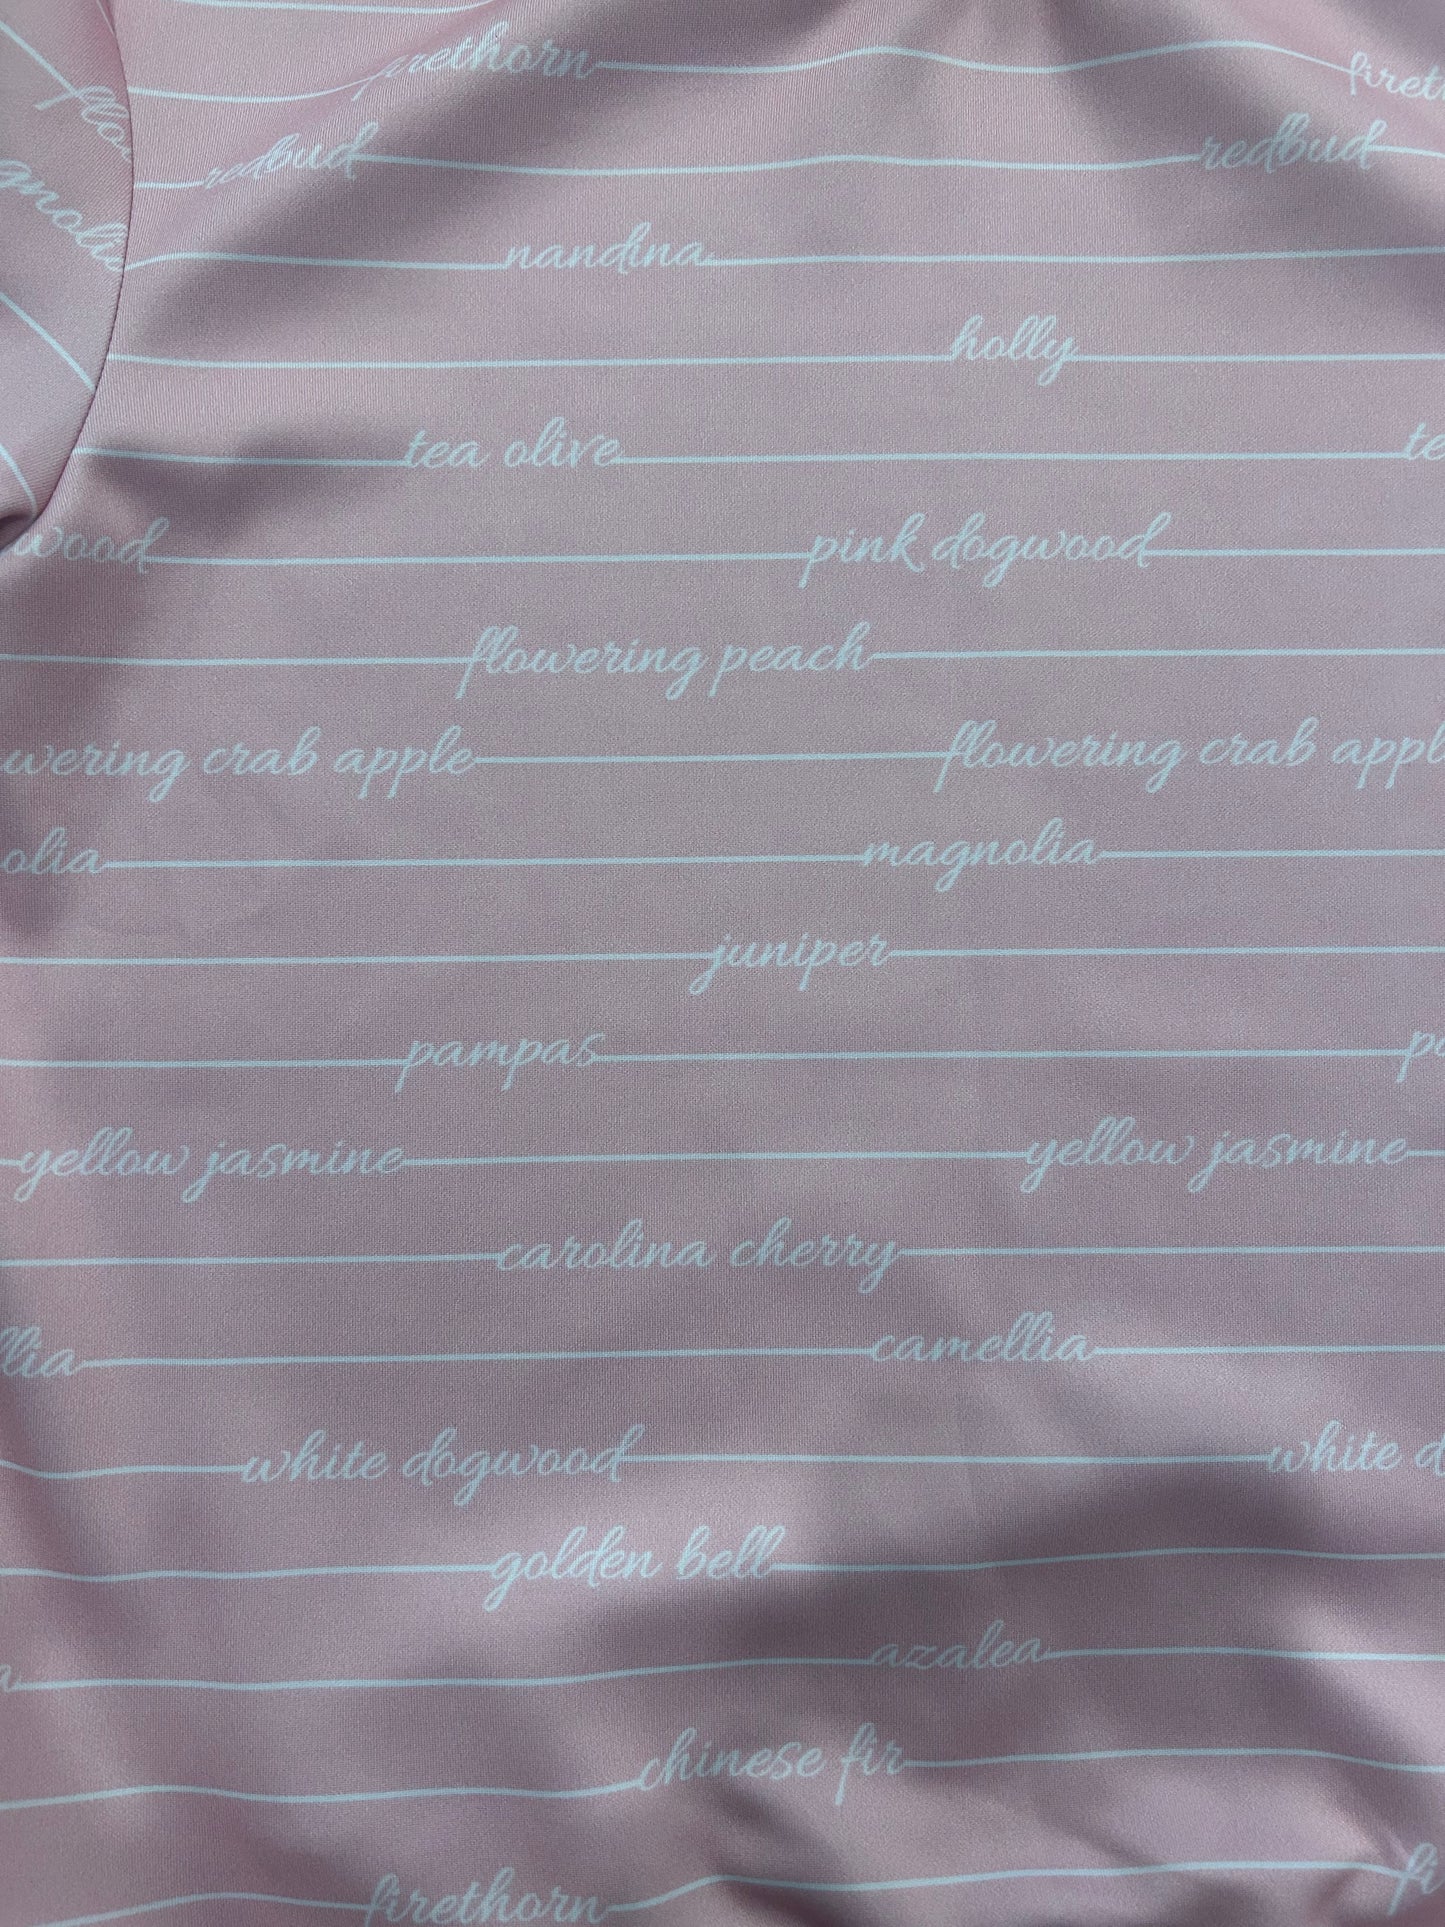 firethorn firet
flo redbud redbud
gnolia nandina
holly
tea olive te
wood pink dogwood
flowering peach
wering crab apple flowering crab appl
olia magnolia
juniper
pampas pa
yellow jasmine yellow jasmine
carolina cherry
llia camellia
white dogwood white d
golden bell
a azalea
chinese fir
firethorn fi